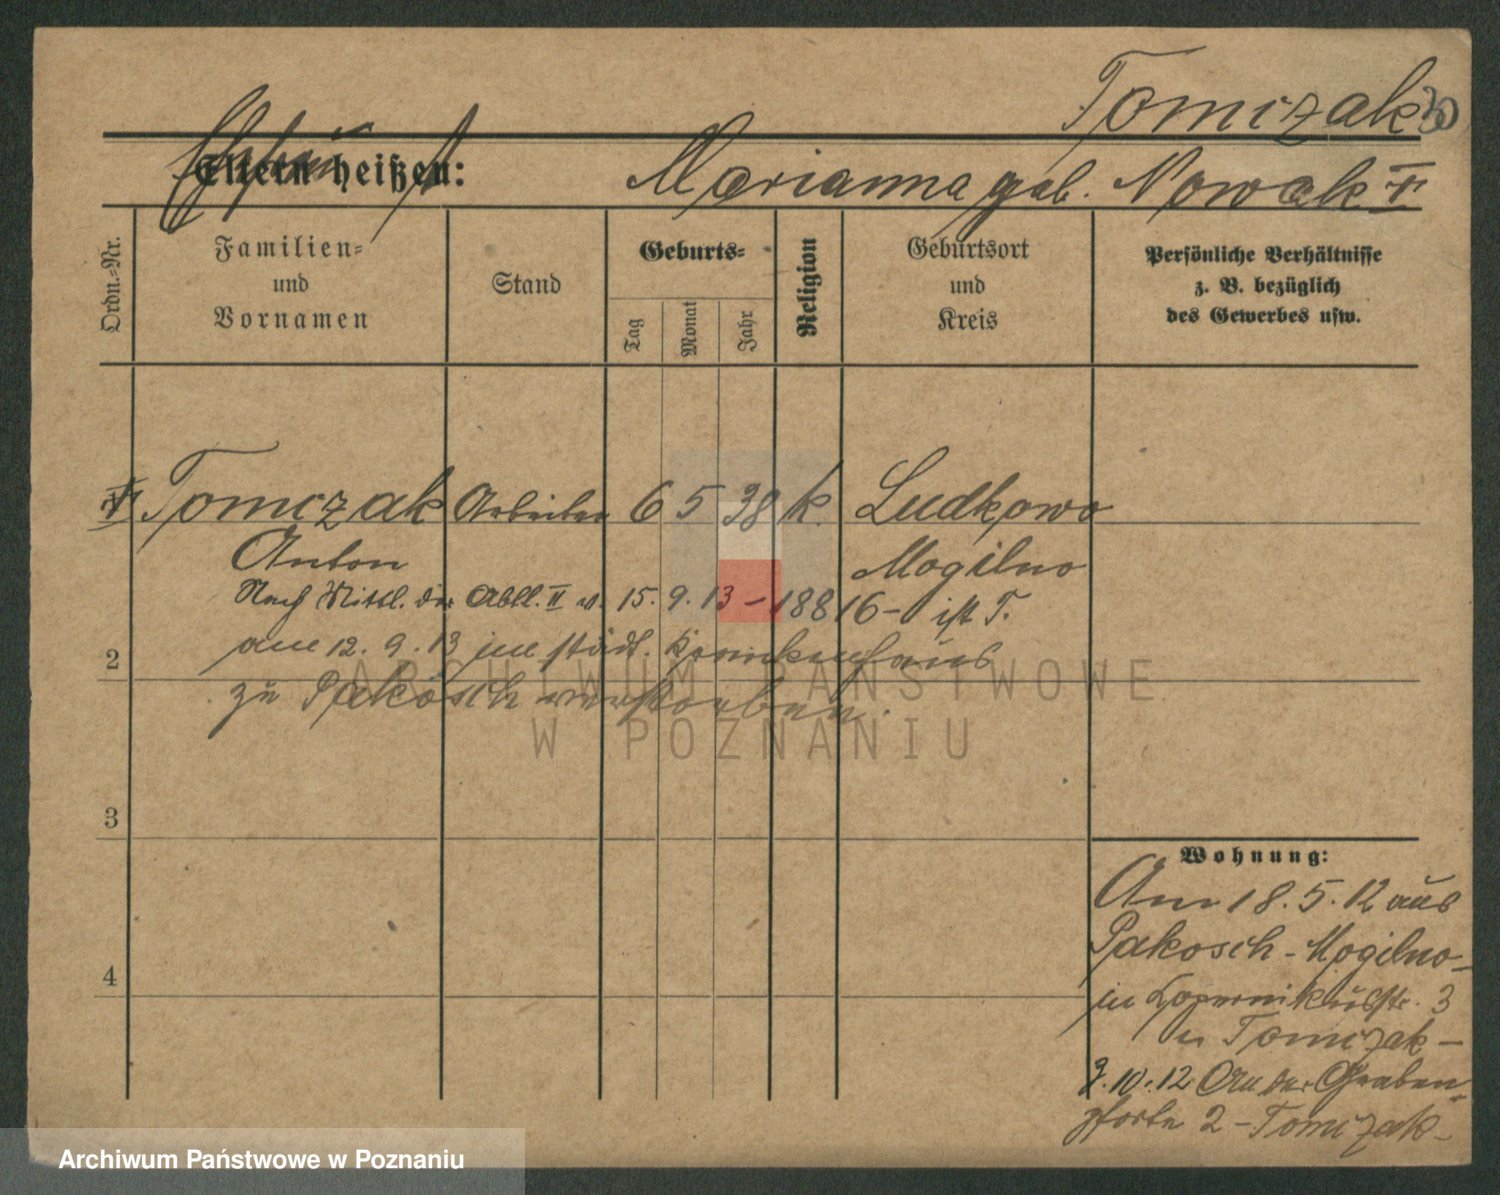 Tomczak
Eltern heißen: Marianna geb. Nowak †
Ordn.=Nr.
Familien= und Vornamen
Stand
Geburts=
Tag
Monat
Jahr
Religion
Geburtsort und Kreis
Persönliche Verhältnisse z. B. bezüglich des Gewerbes usw.
† Tomczak Arbeiter 6 5 38 k. Ludkowo
Anton Mogilno
Nach Mittl. der Abtl. II v. 15. 9. 13 – 18816 – ist T.
am 12. 9. 13 im städt. Krankenhaus
2
zu Pakosch verstorben.
3
4
Wohnung:
Am 18. 5. 12 aus
Pakosch - Mogilno -
in Kopernikusstr. 3
Tomczak -
10. 12 An der Graben-
pforte 2 - Tomczak -
ARCHIWUM PAŃSTWOWE
W POZNANIU
Archiwum Państwowe w Poznaniu